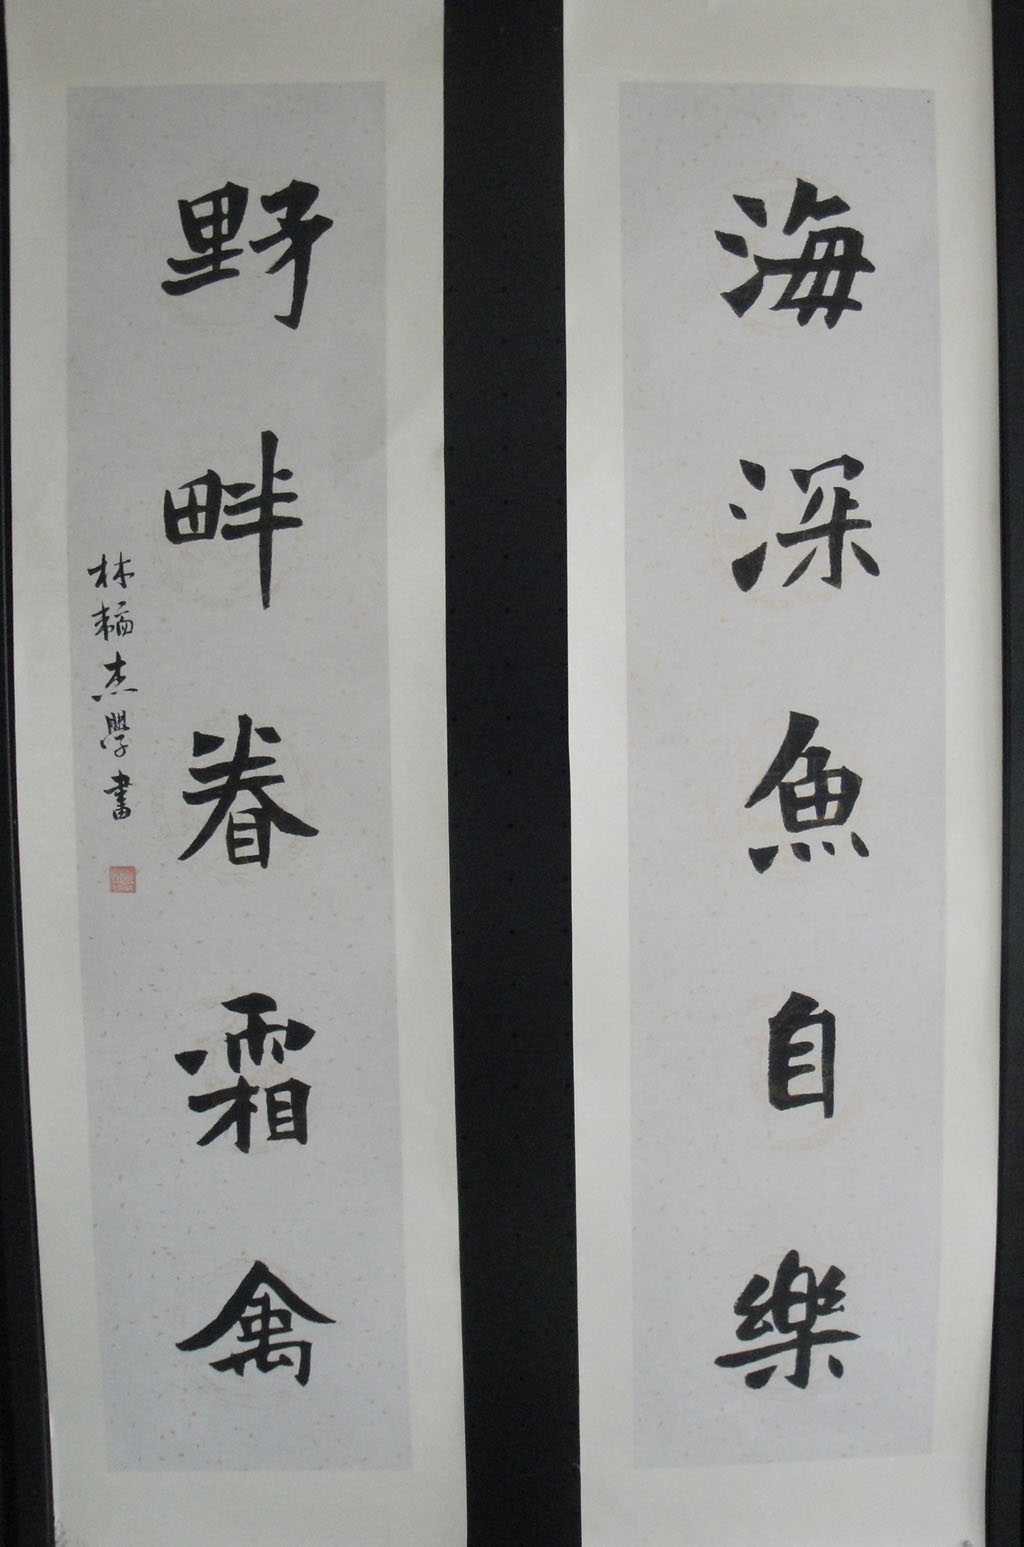 海深魚自樂
野畔眷霜禽
林𫐓杰學書